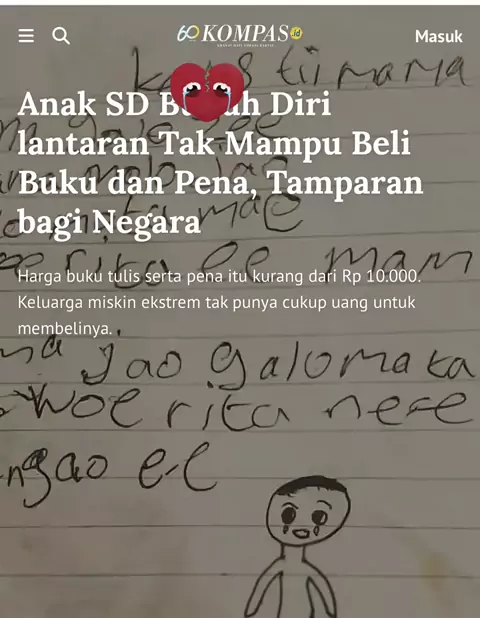 60 KOMPAS.id
Masuk
Anak SD B h Diri
lantaran Tak Mampu Beli
Buku dan Pena, Tamparan
bagi Negara
Harga buku tulis serta pena itu kurang dari Rp 10.000.
Keluarga miskin ekstrem tak punya cukup uang untuk
membelinya.
mama
rita ee mam
ma jao galo mata
woe rita nee
ngao ee